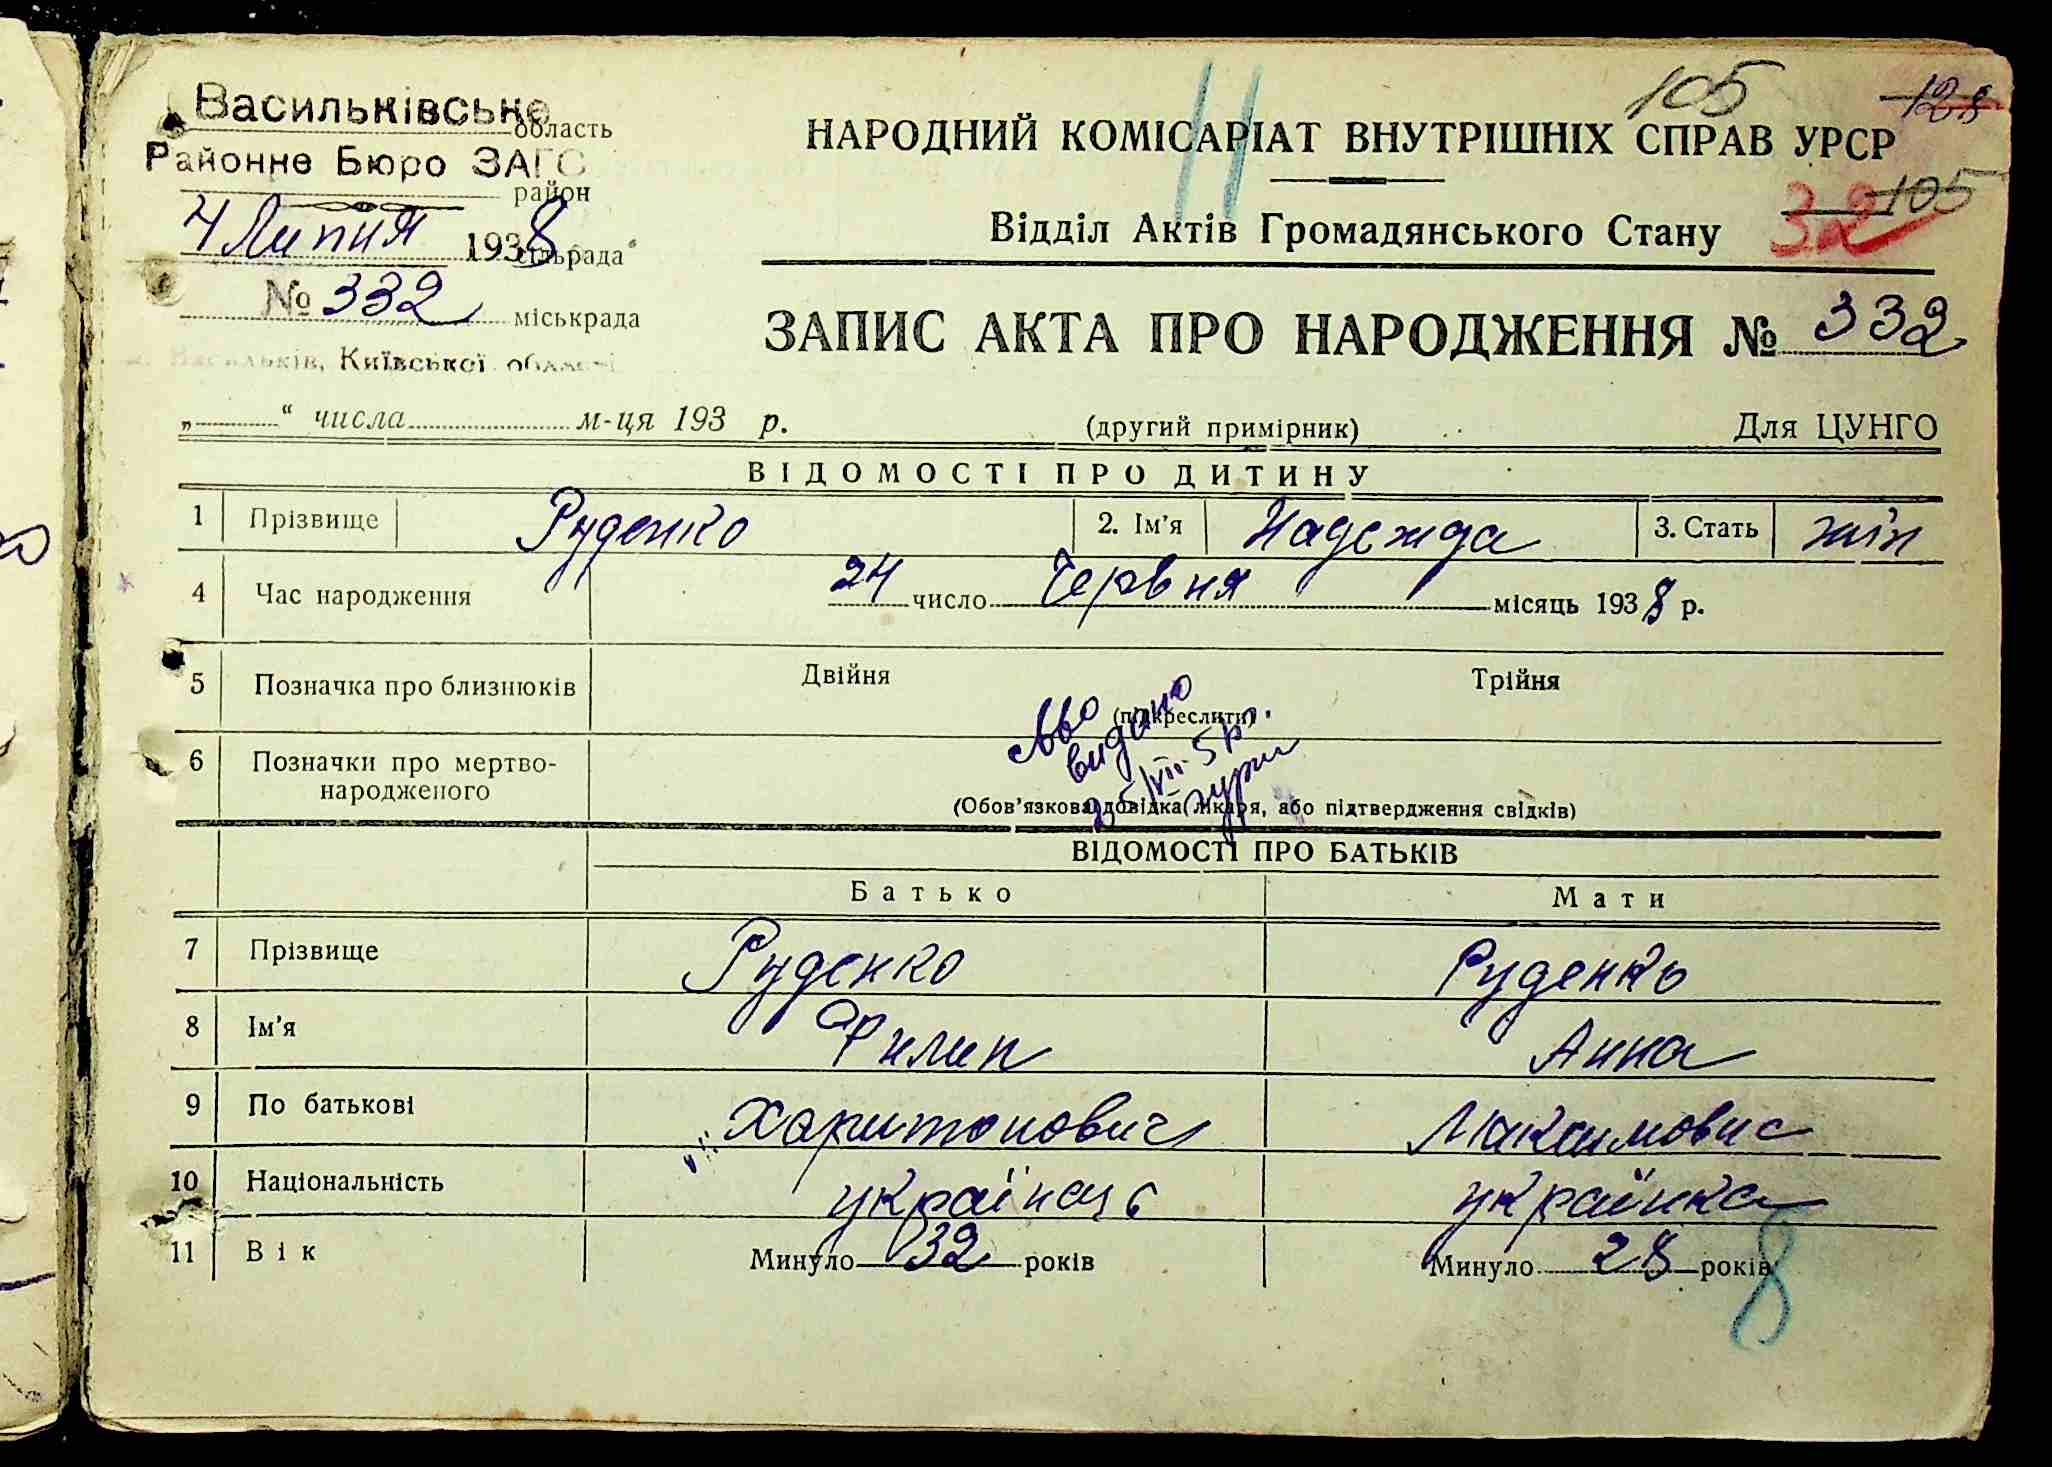 Васильківське
область
Районне Бюро ЗАГС
район
4 Липня 1938
сільрада
№ 332
міськрада
м. Васильків, Київської області
105
128
НАРОДНИЙ КОМІСАРІАТ ВНУТРІШНІХ СПРАВ УРСР
11
105
32
Відділ Актів Громадянського Стану
ЗАПИС АКТА ПРО НАРОДЖЕННЯ № 332
„ “ числа м-ця 193 р.
(другий примірник)
Для ЦУНГО
ВІДОМОСТІ ПРО ДИТИНУ
1 Прізвище Руденко 2. Ім'я Надежда 3. Стать жін
4 Час народження 24 число Червня місяць 1938 р.
5 Позначка про близнюків Двійня Трійня
(підкреслити)
видано
6 Позначки про мертво-
народженого
(Обов'язкова довідка лікаря, або підтвердження свідків)
ВІДОМОСТІ ПРО БАТЬКІВ
Батько Мати
7 Прізвище Руденко Руденко
8 Ім'я Филип Анна
9 По батькові Харитонович Максимовис
10 Національність українець українка
11 Вік Минуло 32 років Минуло 28 років
8